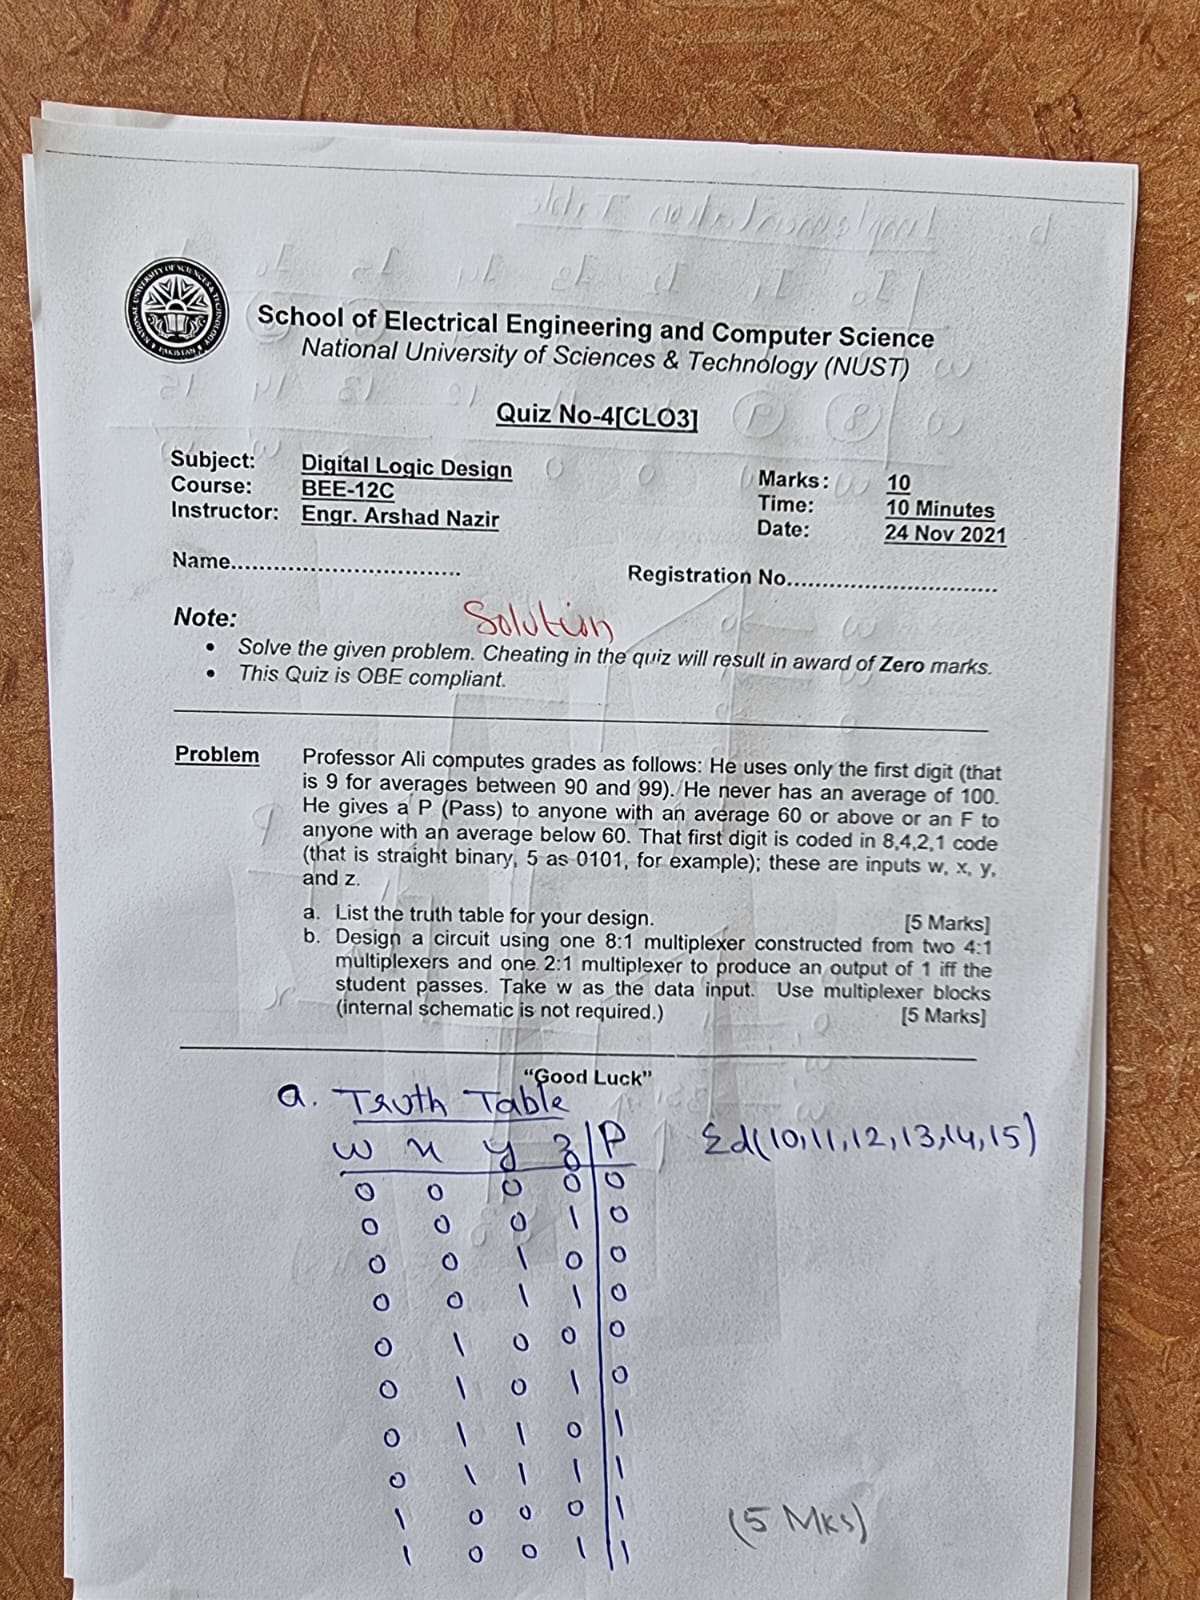 School of Electrical Engineering and Computer Science
National University of Sciences & Technology (NUST)
Quiz No-4[CLO3]
Subject: Digital Logic Design
Course: BEE-12C
Instructor: Engr. Arshad Nazir
Marks: 10
Time: 10 Minutes
Date: 24 Nov 2021
Name................................
Registration No..............................
Solution
Note:
• Solve the given problem. Cheating in the quiz will result in award of Zero marks.
• This Quiz is OBE compliant.
Problem Professor Ali computes grades as follows: He uses only the first digit (that
is 9 for averages between 90 and 99). He never has an average of 100.
He gives a P (Pass) to anyone with an average 60 or above or an F to
anyone with an average below 60. That first digit is coded in 8,4,2,1 code
(that is straight binary, 5 as 0101, for example); these are inputs w, x, y,
and z.
a. List the truth table for your design. [5 Marks]
b. Design a circuit using one 8:1 multiplexer constructed from two 4:1
multiplexers and one 2:1 multiplexer to produce an output of 1 iff the
student passes. Take w as the data input. Use multiplexer blocks
(internal schematic is not required.) [5 Marks]
"Good Luck"
a. Truth Table
w x y z | P Σd(10,11,12,13,14,15)
0 0 0 0 | 0
0 0 0 1 | 0
0 0 1 0 | 0
0 0 1 1 | 0
0 1 0 0 | 0
0 1 0 1 | 0
0 1 1 0 | 1
0 1 1 1 | 1
1 0 0 0 | 1
1 0 0 1 | 1
(5 Mks)